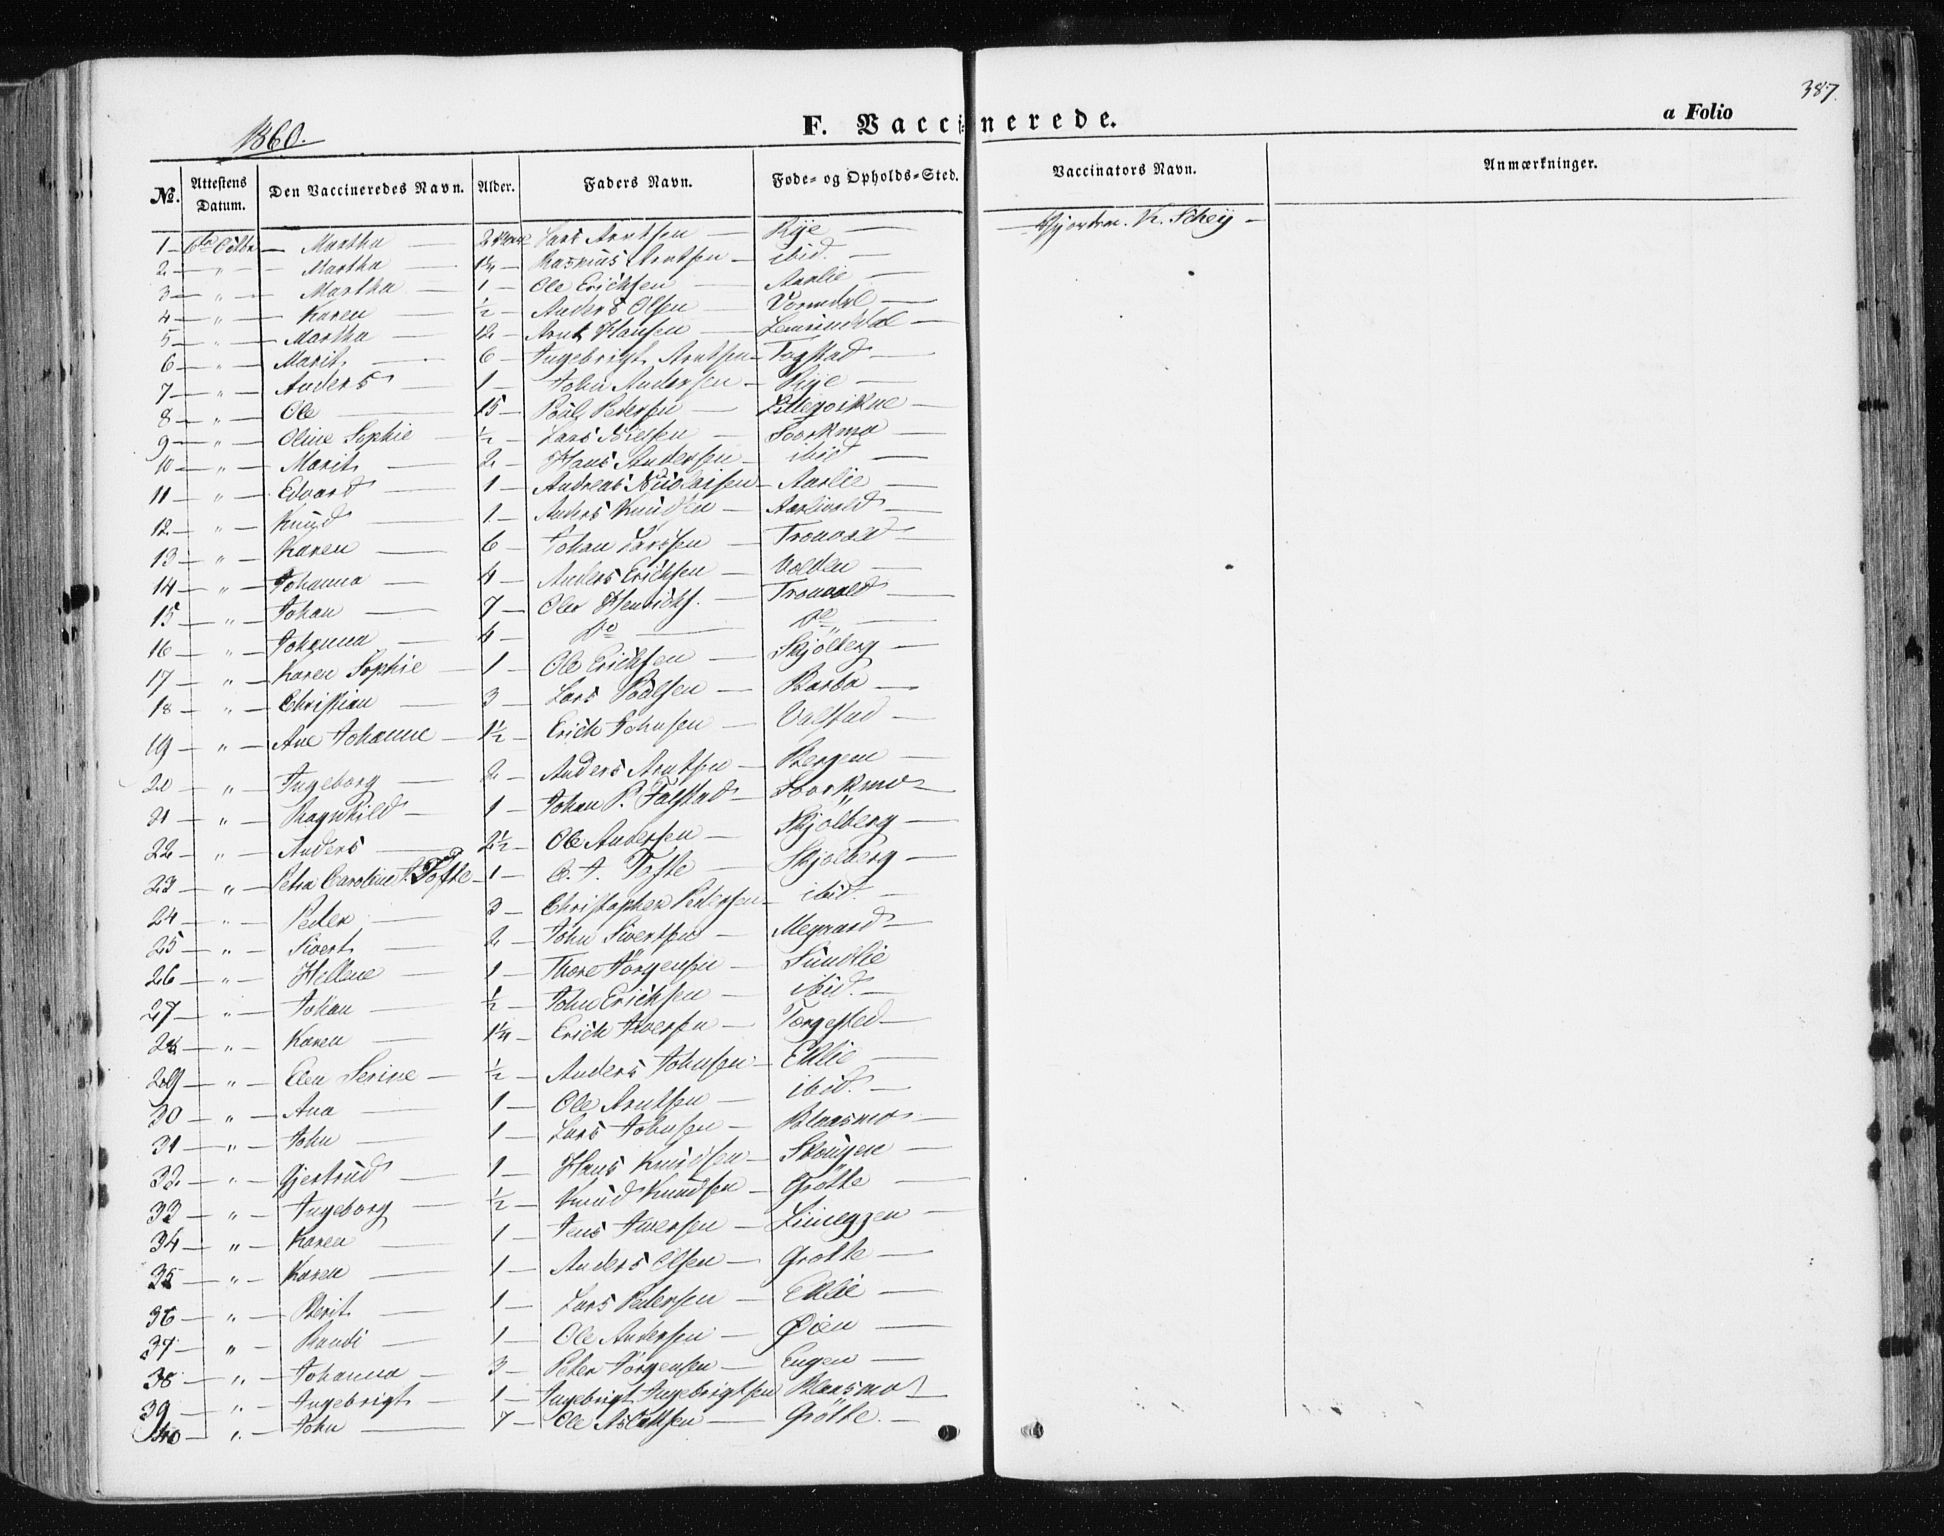 387.
1860.
F. Vaccinerede.
a Folio
No. Attestens Datum. Den Vaccineredes Navn. Alder. Faders Navn. Føde- og Opholds-Sted. Vaccinators Navn. Anmærkninger.
1 — 6te Octbr — Martha — 2 Lars Arntsen — Rye — K. Scheij —
2 — " — Martha — 1¼ — Rasmus Arntsen — ibid. —
3 — " — Martha — 1 — Ole Erichsen — Aarlie —
4 — " — Karen — ½ — Anders Olsen — Vormdal —
5 — " — Martha — 12 — Arnt Hansen —
6 — " — Marit — 6 — Ingebrigt Arntsen — Fagstad —
7 — " — Anders — 1 — John Andersen — Rye —
8 — " — Ole — 15 — Poul Petersen —
9 — " — Oline Sophie — ½ — Lars Nielsen — Soorkmo —
10 — " — Marit — 2 — Hans Andersen — ibid —
11 — " — Edvard — 1 — Andreas Nicolaisen — Aarlie —
12 — " — Knud — 1 — Anders Knudsen — Aarlivold —
13 — " — Karen — 6 — Johan Larssen — Tronvold —
14 — " — Johanna — 4 — Anders Erichsen — Volden —
15 — " — Johan — 7 — Ole Henrichs. — Tronvold —
16 — " — Johanna — 4 — Do — Do —
17 — " — Karen Sophie — 1 — Ole Erichsen — Skjölberg —
18 — " — Christian — 3 — Lars Poulsen — Barbo —
19 — " — Ane Johanne — 1½ — Erich Johnsen — Valstad —
20 — " — Ingeborg — 2 — Anders Arntsen — Bergem —
21 — " — Ragnhild — 1 — Johan P. Falstad — Soorkmo —
22 — " — Anders — 2½ — Ole Andersen — Skjölberg —
23 — " — Petra Caroline P. Tofte — 1 — A. Tofte — Skjölberg —
24 — " — Peder — 3 — Christopher Pedersen — ibid. —
25 — " — Sivert — 2 — John Sivertsen — Megaard —
26 — " — Hellene — 1 — Thore Jörgensen — Sundlie
27 — " — Johan — ½ — John Erichsen — ibid. —
28 — " — Karen — 1¼ — Erich Iversen — Torgested —
29 — " — Elen Serine — ½ — Anders Johnsen — Eklie —
30 — " — Ana — 1 — Ole Arntsen — ibid. —
31 — " — John — 1 — Lars Johnsen — Blaasmo —
32 — " — Gjertrud — 1 — Hans Knudsen — Skougen —
33 — " — Ingeborg — ½ — Knud Knudsen — Grötte —
34 — " — Karen — 1 — Jens Iversen — Limeggen —
35 — " — Karen — 1 — Anders Olsen — Grötte —
36 — " — Berit — 1 — Lars Pedersen — Eklie —
37 — " — Randi — 1 — Ole Andersen — Øien —
38 — " — Johanna — 3 — Peter Jörgensen — Engen —
39 — " — Ingebrigt — 1 — Ingebrigt Ingebrigtsen Blaasmo —
40 — " — John — 7 — Ole Aslaksen — Grötte. —